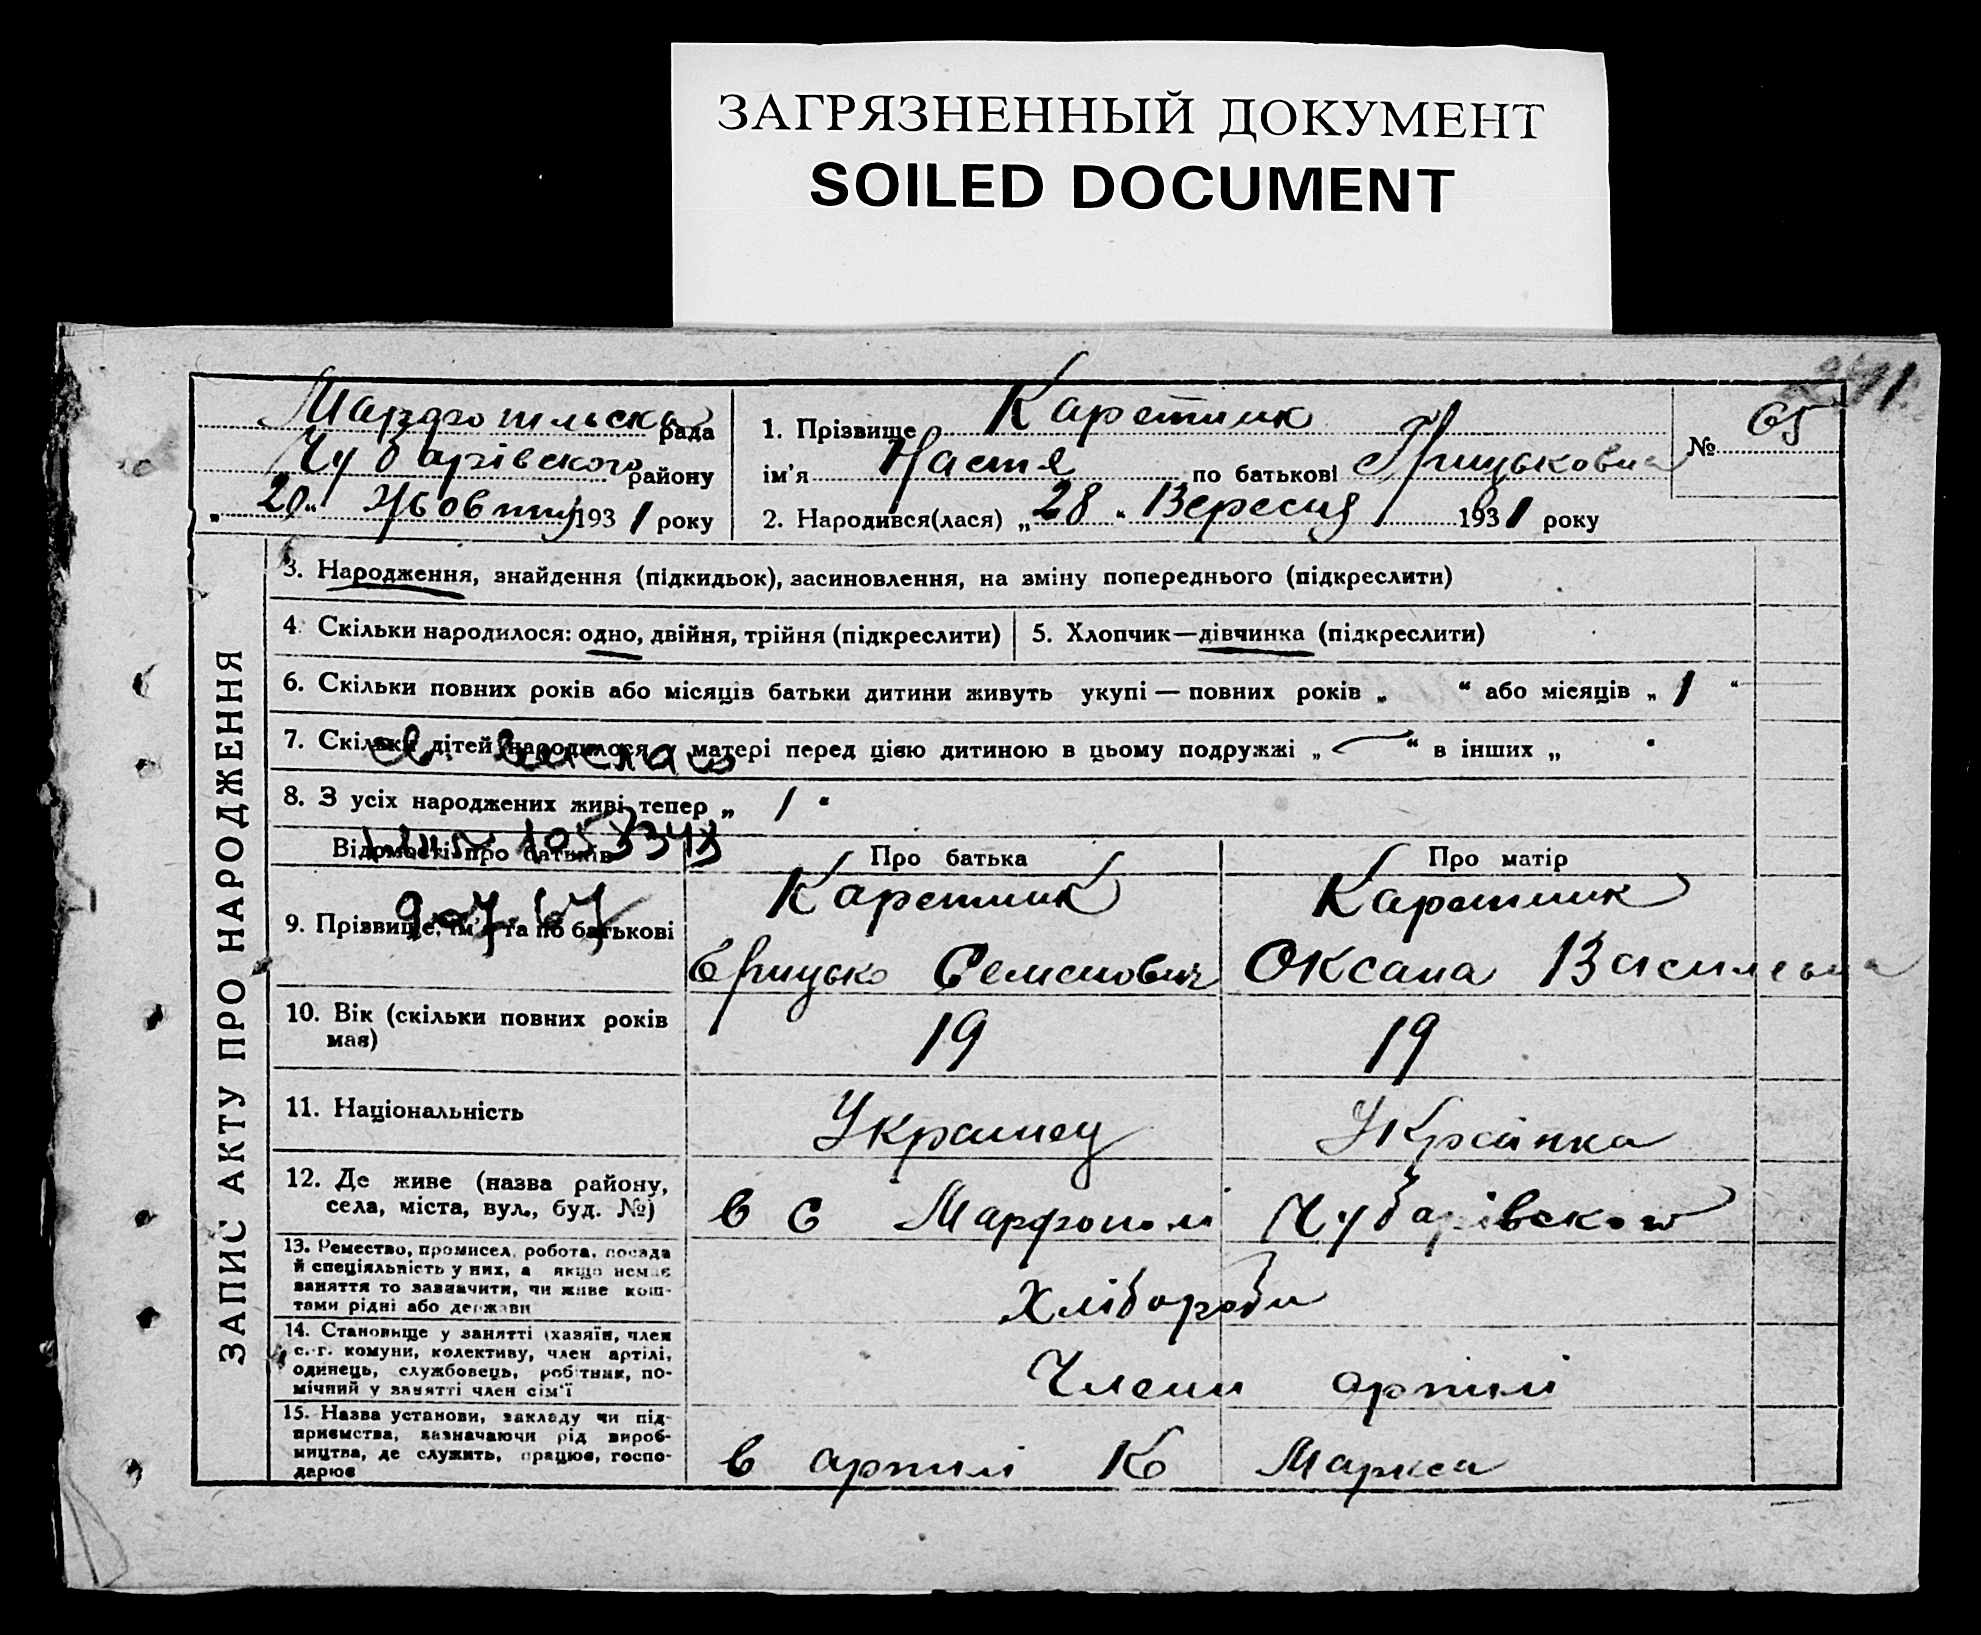 ЗАГРЯЗНЕННЫЙ ДОКУМЕНТ
SOILED DOCUMENT
241
Марфопільська рада
Чубарівского району
„20“ Жовтня 1931 року
1. Прізвище Каретник
ім'я Настя по батькові Грицьковна
№ 65
2. Народився(лася) „28“ Вересня 1931 року
ЗАПИС АКТУ ПРО НАРОДЖЕННЯ
3. Народження, знайдення (підкидьок), засиновлення, на зміну попереднього (підкреслити)
4. Скільки народилося: одно, двійня, трійня (підкреслити)
5. Хлопчик—дівчинка (підкреслити)
6. Скільки повних років або місяців батьки дитини живуть укупі — повних років „ “ або місяців „ 1 “
7. Скільки дітей народилося у матері перед цією дитиною в цьому подружжі „ — “ в інших „ “
8. З усіх народжених живі тепер „ 1 “
Відомості про батьків
Про батька
Про матір
9. Прізвище, ім'я та по батькові
Каретник
Грицько Семенович
Каретник
Оксана Васильевна
10. Вік (скільки повних років
має)
19
19
11. Національність
Украинец
Українка
12. Де живе (назва району,
села, міста, вул., буд. №)
в с Марфополі Чубарівском
13. Ремество, промисел, робота, посада
й спеціяльність у них, а якщо немає
заняття то зазначити, чи живе кош-
тами рідні або держави
Хлібороби
14. Становище у занятті (хазяїн, член
с.-г. комуни, колективу, член артілі,
одинець, службовець, робітник, по-
мічний у занятті член сім'ї
Члени артилі
15. Назва установи, закладу чи під-
приємства, зазначаючи рід вироб-
ництва, де служить, працює, госпо-
дарює
в артилі К Маркса